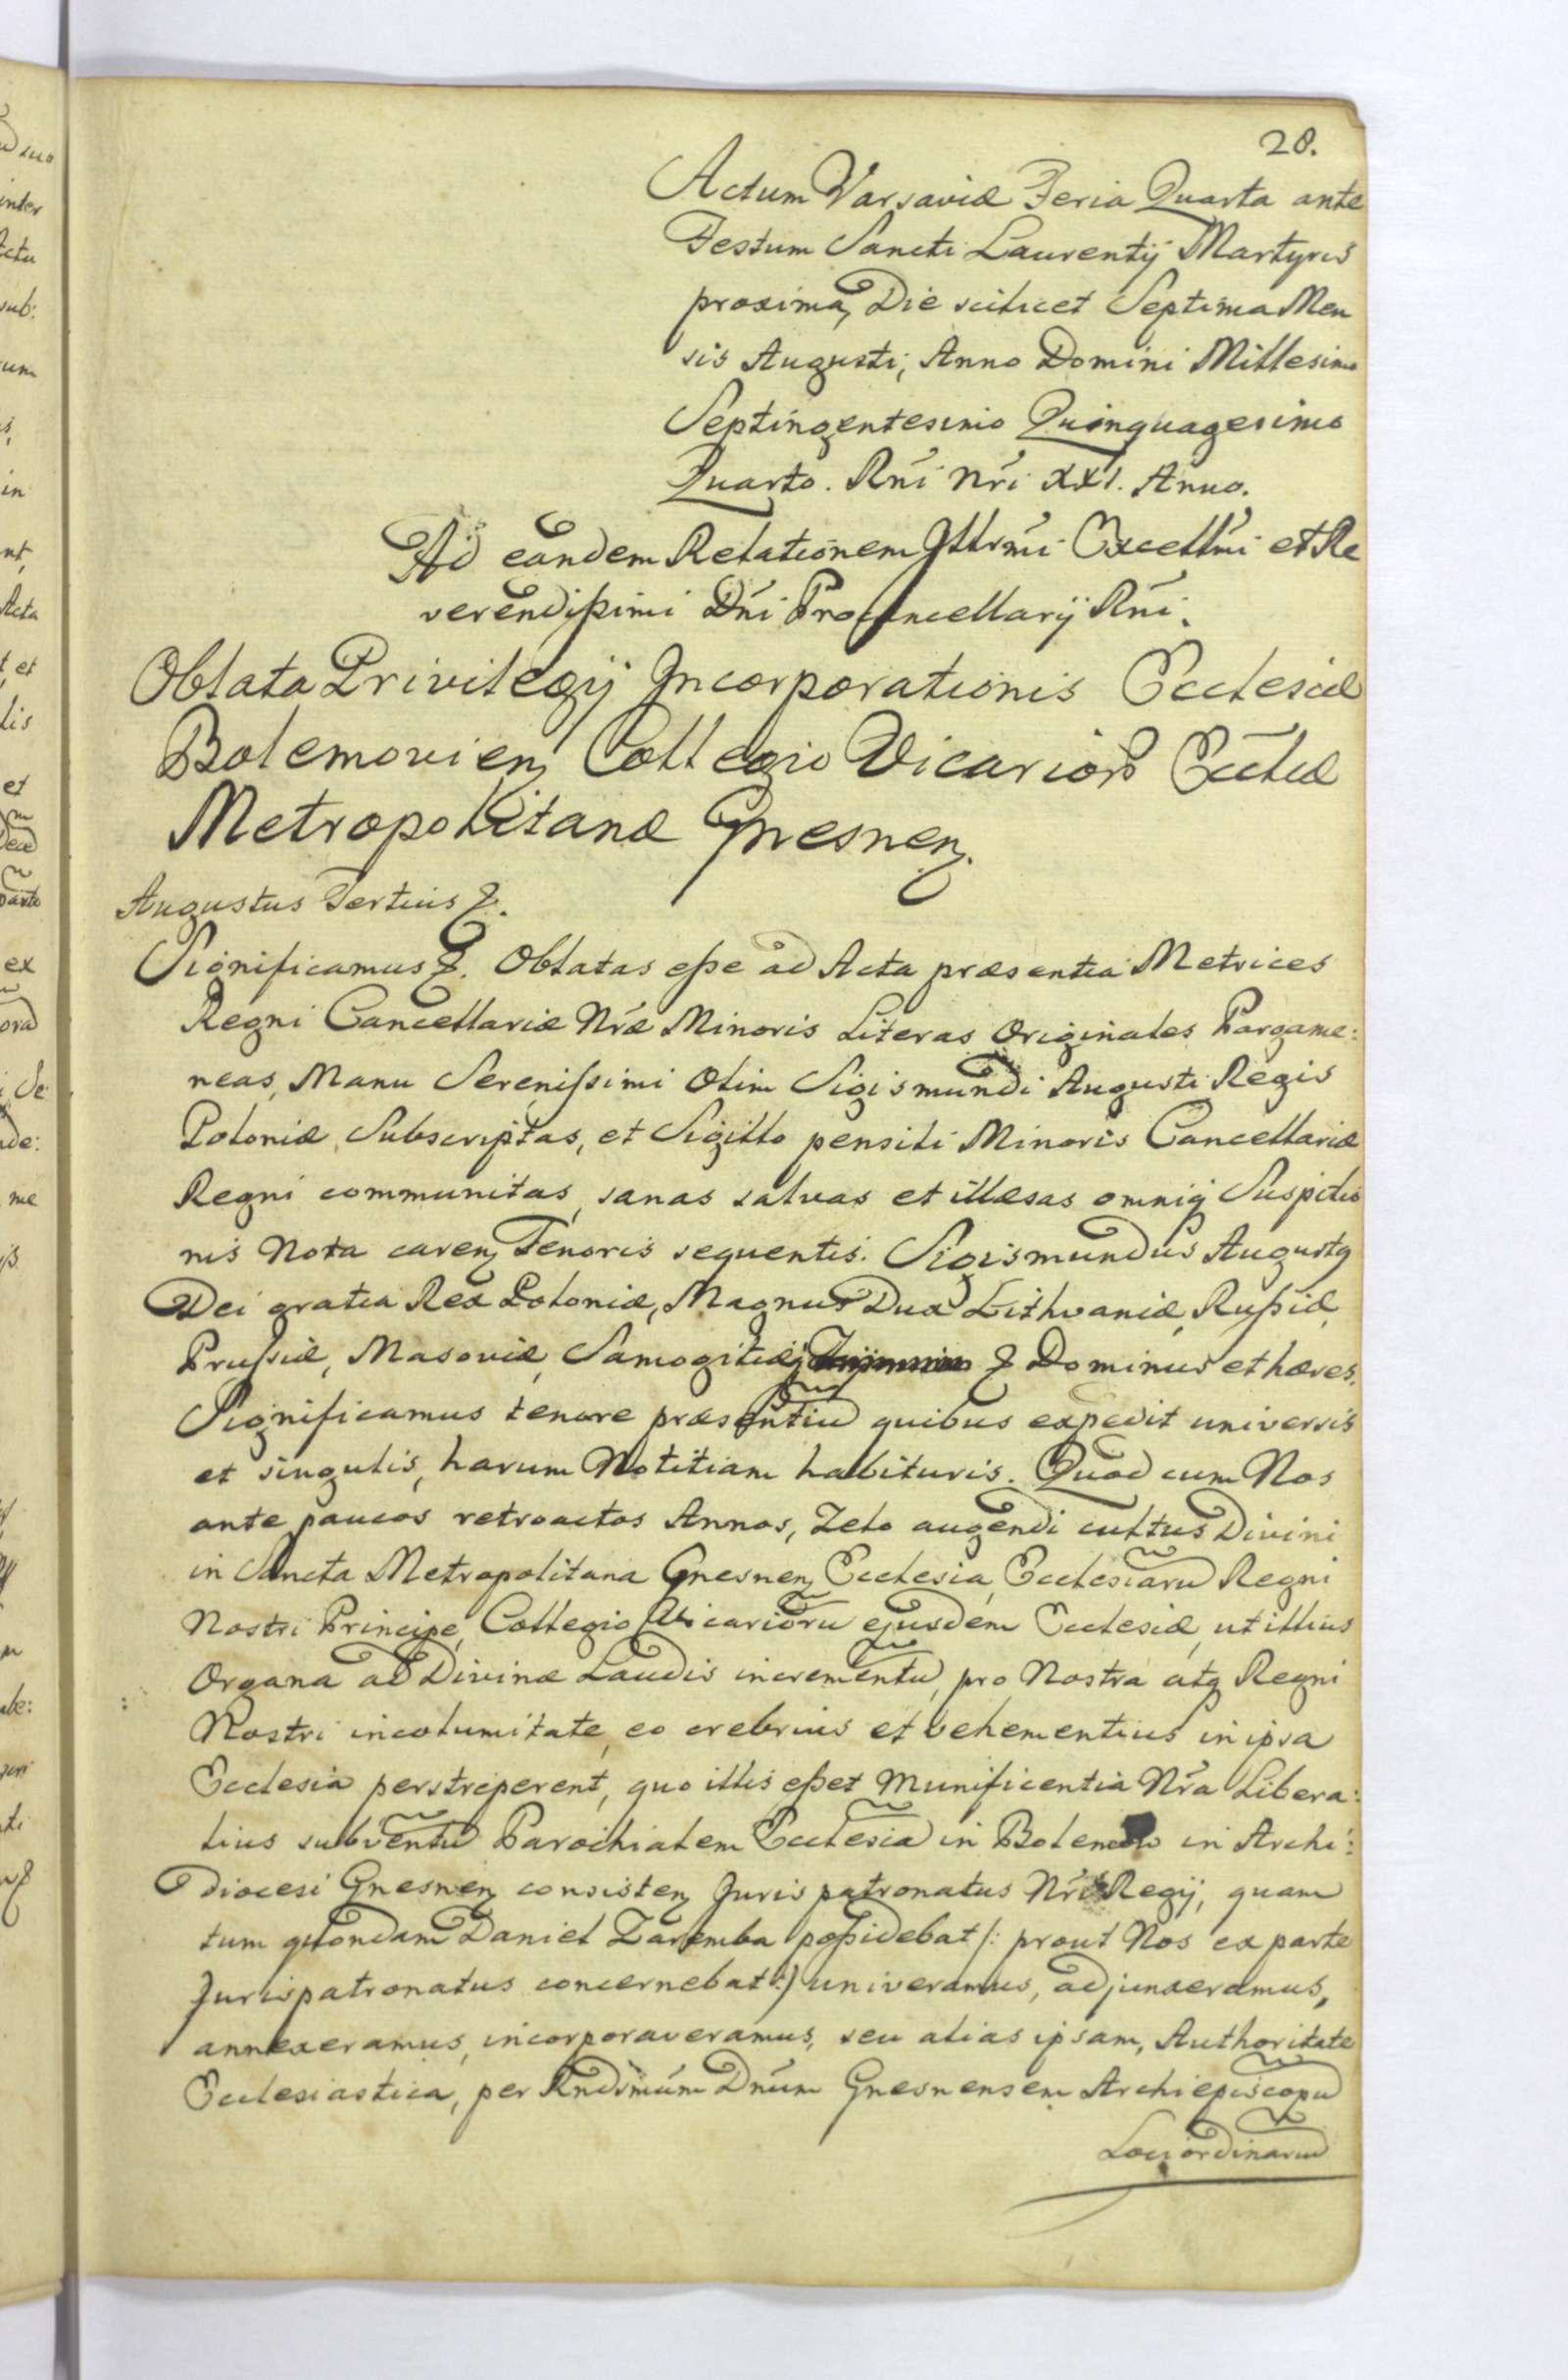 28.
Actum Varsaviæ Feria Quarta ante
Festum Sancti Laurentij Martyris
proxima, Die scilicet Septima Men
sis Augusti, Anno Domini Millesimo
Septingentesimo Quinquagesimo
Quarto. Rńi Nri XXI. Anno.
Ad eandem Relationem Illrmi Excellmi et Re
verendißimi Dńi Procancellarij Rńi.
Oblata Privilegij Incorporationis Ecclesiæ
Bolemovien Collegio Vicarior Eccliæ
Metropolitanæ Gnesnen.
Augustus Tertius &.
Significamus &. Oblatas eße ad Acta præsentia Metrices
Regni Cancellariæ Nræ Minoris Literas Originales Pargame:
neas, Manu Serenißimi Olim Sigismundi Augusti Regis
Poloniæ Subscriptas, et Sigillo pensili Minoris Cancellariæ
Regni communitas, sanas salvas et illæsas omniq Suspitio
nis Nota caren Tenoris sequentis. Sigismundus Augustq
Dei gratia Rex Poloniæ, Magnus Dux Lithvaniæ, Rußiæ,
Prußiæ, Masoviæ, Samogitiæq & Dominus et hæres.
Significamus tenore præsentiu quibus expedit universis
et singulis, harum Notitiam habituris. Quod cum Nos
ante paucos retroactos Annos, Zelo augendi cultus Divini
in Sancta Metropolitana Gnesnen Ecclesia, Ecclesiaru Regni
Nostri Principe, Collegio Vicarioru ejusdem Ecclesiæ, ut illius
Organa ad Divinæ Laudis incrementu, pro Nostra atq Regni
Nostri incolumitate, eo crebrius et vehementius in ipsa
Ecclesia perstreperent, quo illis eßet Munificentia Nra Libera:
lius subventu Parochialem Ecclesia in Bolemow in Archi:
diocesi Gnesnen consisten Juris patronatus Nri Regij, quam
tum quondam Daniel Zaremba poßidebat /: prout Nos ex parte
Jurispatronatus concernebat :/ univeramus, adjunxeramus,
annexeramus, incorporaveramus, seu alias ipsam, Authoritate
Ecclesiastica, per Rndimum Dnum Gnesnensem Archiepiscopu
Loci ordinariu